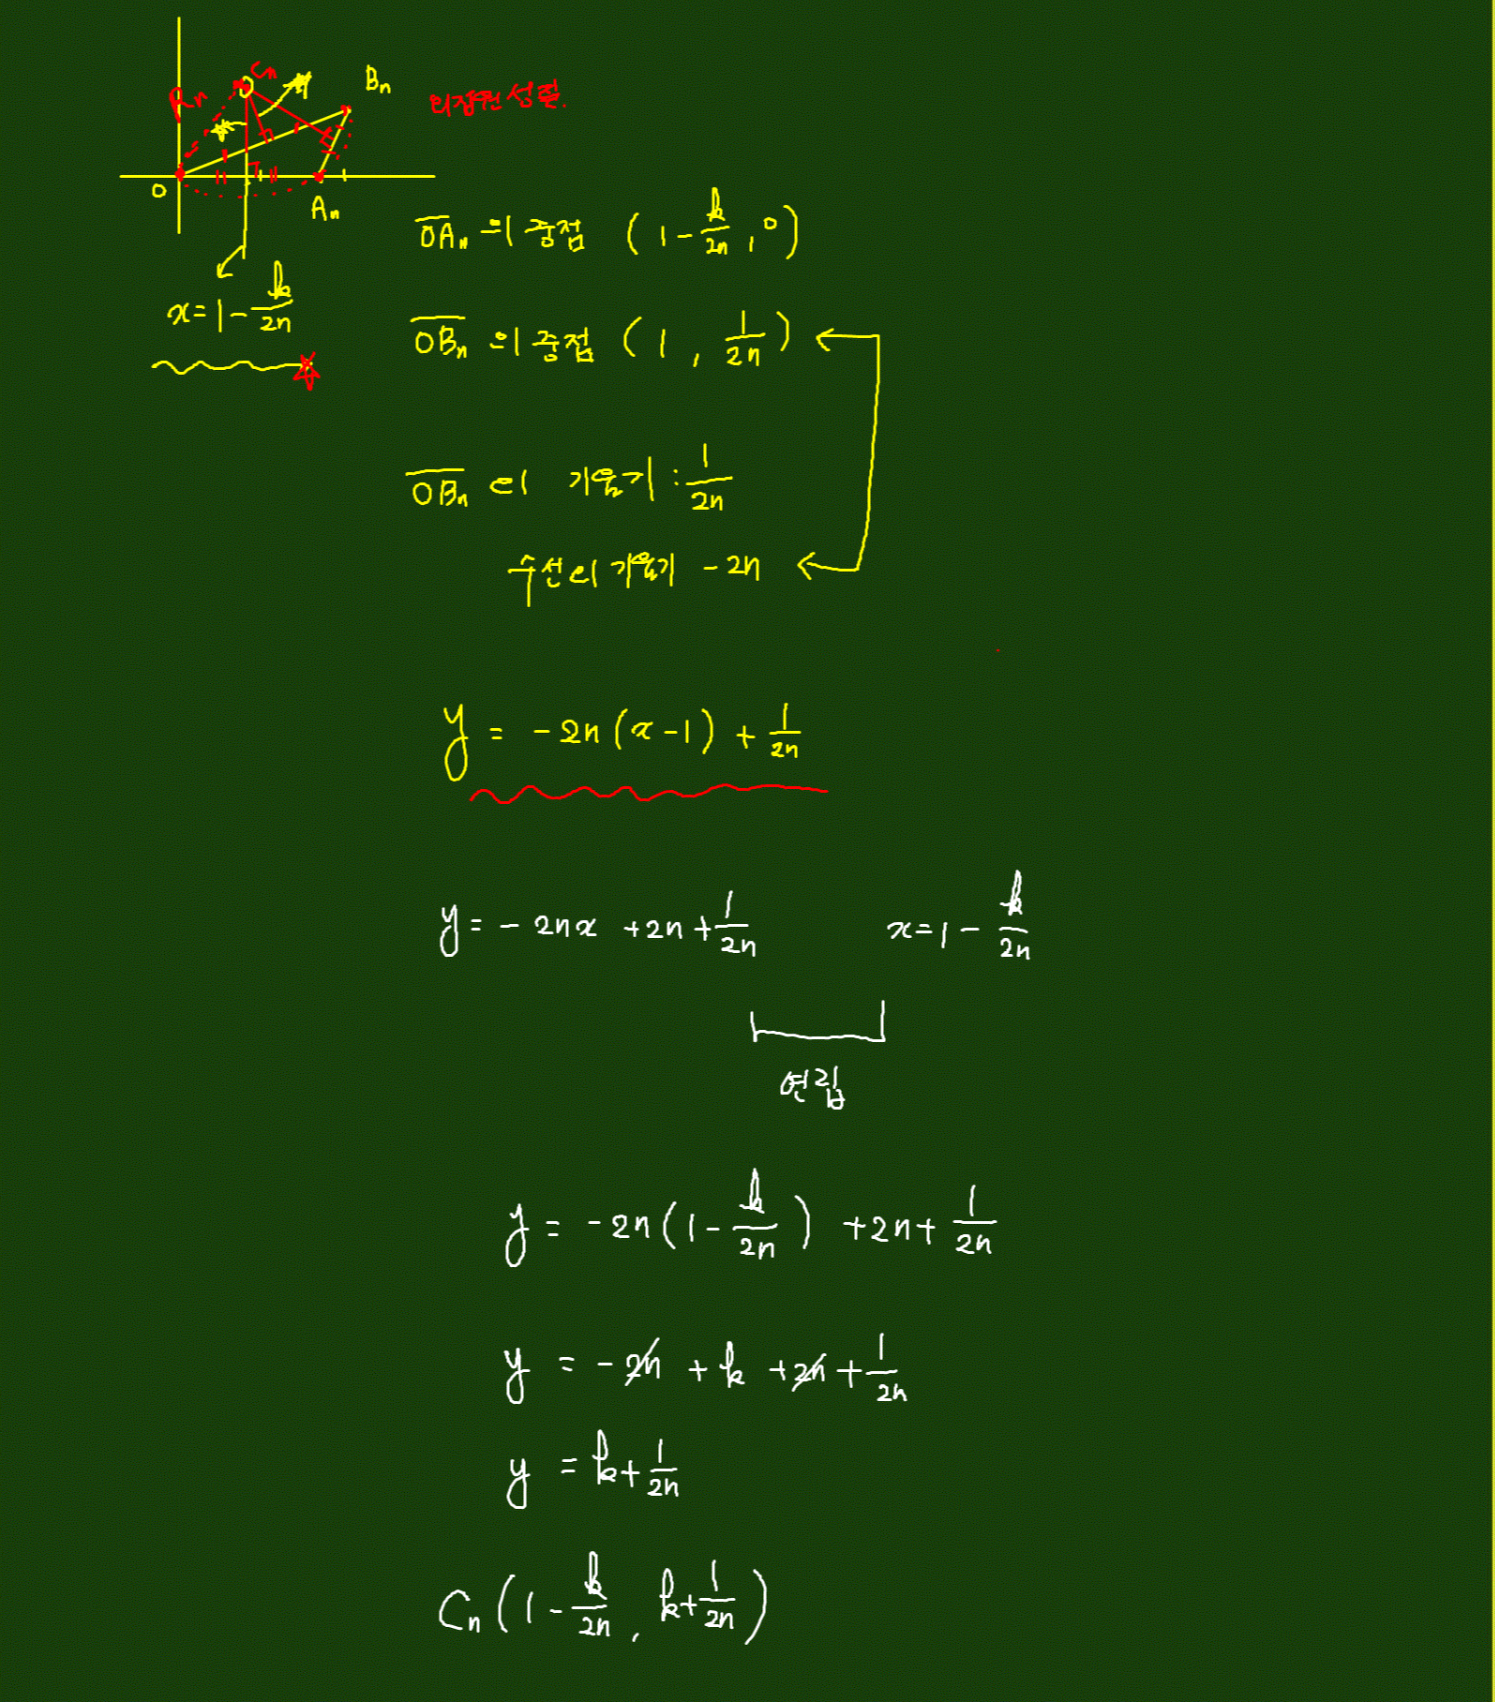 Cₙ
Rₙ
Bₙ
외접원 성질.
O
Aₙ
x = 1 - k/2n
OAₙ 의 중점 (1 - k/2n, 0)
OBₙ 의 중점 (1, 1/2n)
OBₙ 의 기울기 : 1/2n
수선의 기울기 -2n
y = -2n(x-1) + 1/2n
y = -2nx + 2n + 1/2n
x = 1 - k/2n
연립
y = -2n(1 - k/2n) + 2n + 1/2n
y = -2n + k + 2n + 1/2n
y = k + 1/2n
Cₙ(1 - k/2n, k + 1/2n)